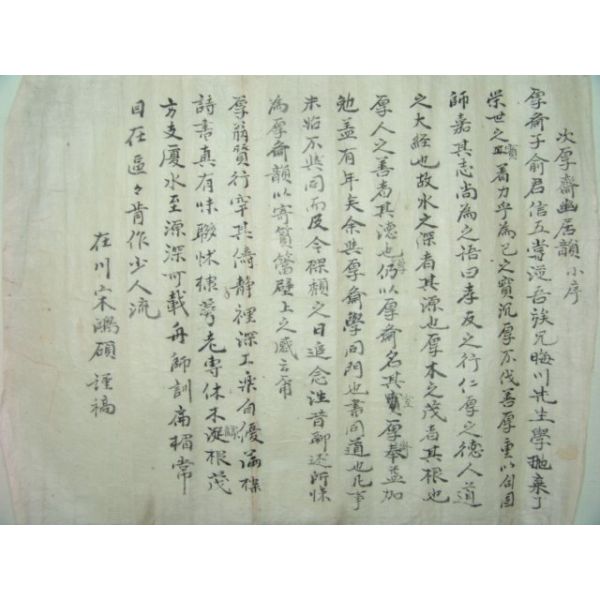 次厚齋幽居韻 小序
厚齋子俞君信五嘗從吾族兄晦川先生學抛棄了
榮世之四着力乎為己之實沉厚不伐善厚重以自固
師嘉其志尚為之語曰孝友之行仁厚之德人道
之大經也故水之深者其源也厚木之茂者其根也
厚人之善者其德也仍以厚齋名其厚奉益加
勉盖有年矣余與厚齋學同門也書同道也凡事
未始不與同而及今碌碌之日追念往昔聊述所懷
為厚齋韻以寄賀簹壁上之感云爾
厚翁賢行罕其儔靜裡深工樂自優滿樑
詩書真有味聯牀棣萼老專休木凝根茂
方支廈水至源深可載舟師訓扁楣常
目在區々肯作少人流
在川宋鴻碩謹稿